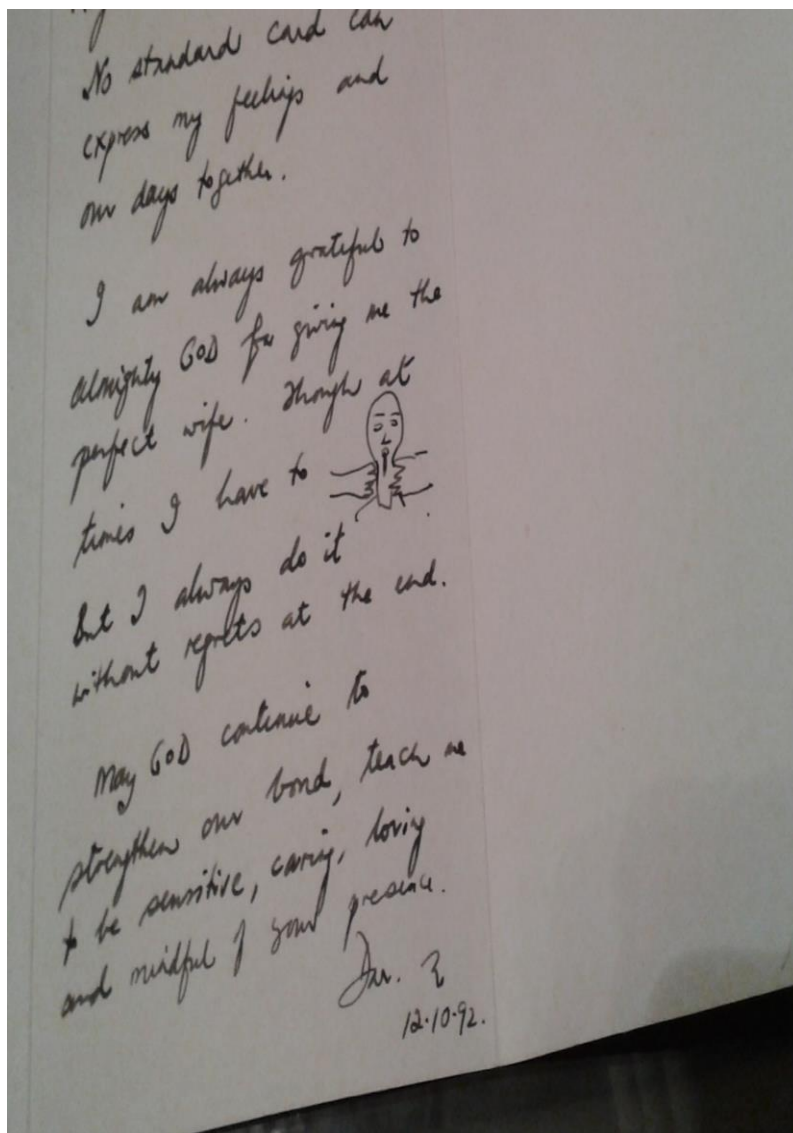 No standard card can
express my feelings and
our days together.
I am always grateful to
almighty GOD for giving me the
perfect wife. Though at
times I have to
But I always do it
without regrets at the end.
May GOD continue to
strengthen our bond, teach me
to be sensitive, caring, loving
and mindful of your presence.
12.10.92.